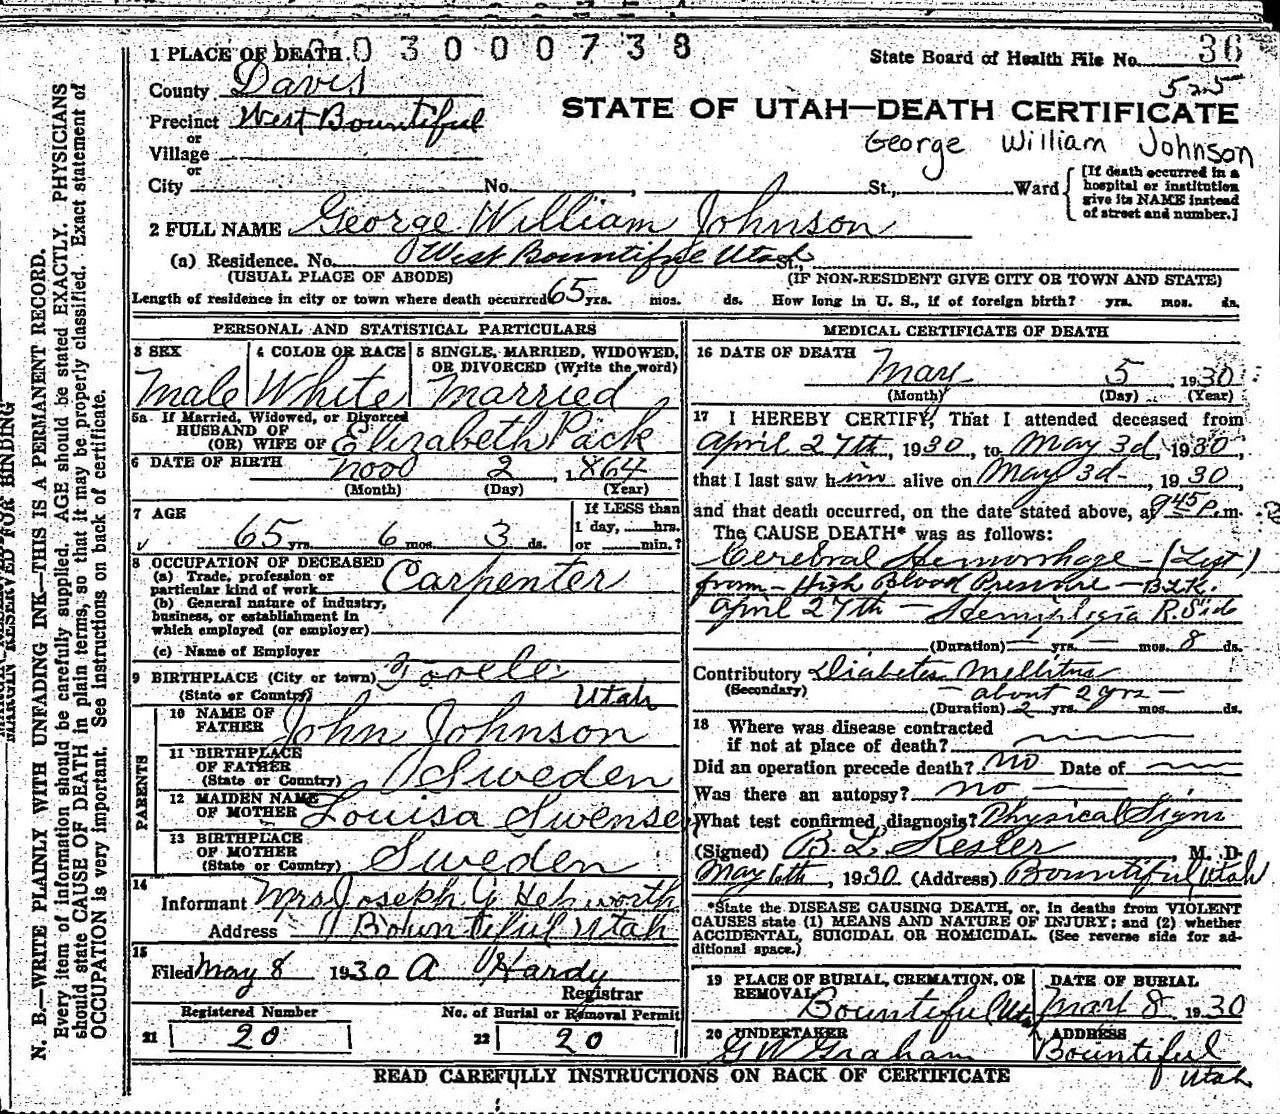 1 PLACE OF DEATH. 0 3 0 0 0 7 3 8
State Board of Health File No. 36
County Davis
525
Precinct West Bountiful
STATE OF UTAH—DEATH CERTIFICATE
or
Village
George William Johnson
or
City No. , St., Ward
[If death occurred in a hospital or institution give its NAME instead of street and number.]
2 FULL NAME George William Johnson
(a) Residence. No. West Bountiful Utah St.,
(USUAL PLACE OF ABODE) (IF NON-RESIDENT GIVE CITY OR TOWN AND STATE)
Length of residence in city or town where death occurred 65 yrs. mos. ds. How long in U. S., if of foreign birth? yrs. mos. ds.
PERSONAL AND STATISTICAL PARTICULARS
3 SEX
Male
4 COLOR OR RACE
White
5 SINGLE, MARRIED, WIDOWED,
OR DIVORCED (Write the word)
Married
5a If Married, Widowed, or Divorced
HUSBAND OF
(OR) WIFE OF Elizabeth Pack
6 DATE OF BIRTH Nov 2, 1864
(Month) (Day) (Year)
7 AGE
65 yrs. 6 mos. 3 ds.
If LESS than
1 day, hrs.
or min.?
8 OCCUPATION OF DECEASED
(a) Trade, profession or
particular kind of work Carpenter
(b) General nature of industry,
business, or establishment in
which employed (or employer)
(c) Name of Employer
9 BIRTHPLACE (City or town) Tooele
(State or Country) Utah
PARENTS
10 NAME OF
FATHER John Johnson
11 BIRTHPLACE
OF FATHER
(State or Country) Sweden
12 MAIDEN NAME
OF MOTHER Louisa Swensen
13 BIRTHPLACE
OF MOTHER
(State or Country) Sweden
14
Informant Mrs Joseph G Hepworth
Address Bountiful Utah
15
Filed May 8 1930 A Hardy
Registrar
Registered Number
21 20
No. of Burial or Removal Permit
22 20
MEDICAL CERTIFICATE OF DEATH
16 DATE OF DEATH
May 5, 1930
(Month) (Day) (Year)
17 I HEREBY CERTIFY, That I attended deceased from
April 27th, 1930, to May 3d, 1930,
that I last saw him alive on May 3d- , 1930,
and that death occurred, on the date stated above, at 945 P.m.
The CAUSE DEATH* was as follows:
Cerebral Hemorrhage - (Left)
from - High Blood Pressure - B.L.K.
April 27th - Hemiplegia R. Side
(Duration) yrs. mos. 8 ds.
Contributory Diabetes Mellitus
(Secondary) - about 2 yrs -
(Duration) 2 yrs. mos. ds.
18 Where was disease contracted
if not at place of death?
Did an operation precede death? no Date of
Was there an autopsy? no
What test confirmed diagnosis? Physical Signs
(Signed) B. L. Kesler, M. D.
May 6th, 1930 (Address) Bountiful, Utah
*State the DISEASE CAUSING DEATH, or, in deaths from VIOLENT
CAUSES state (1) MEANS AND NATURE OF INJURY; and (2) whether
ACCIDENTAL, SUICIDAL OR HOMICIDAL. (See reverse side for ad-
ditional space.)
19 PLACE OF BURIAL, CREMATION, OR
REMOVAL Bountiful Ut
DATE OF BURIAL
May 8 1930
20 UNDERTAKER
G W Graham
ADDRESS
Bountiful
Utah
READ CAREFULLY INSTRUCTIONS ON BACK OF CERTIFICATE
MARGIN RESERVED FOR BINDING
N. B.—WRITE PLAINLY WITH UNFADING INK—THIS IS A PERMANENT RECORD.
Every item of information should be carefully supplied. AGE should be stated EXACTLY. PHYSICIANS
should state CAUSE OF DEATH in plain terms, so that it may be properly classified. Exact statement of
OCCUPATION is very important. See instructions on back of certificate.